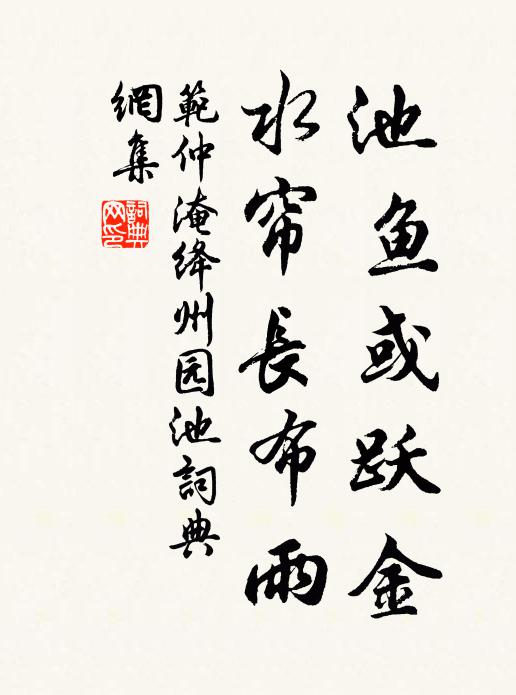 池鱼或跃金
水帘長布雨
範仲淹绛州园池詞典
網集
詞典
网印